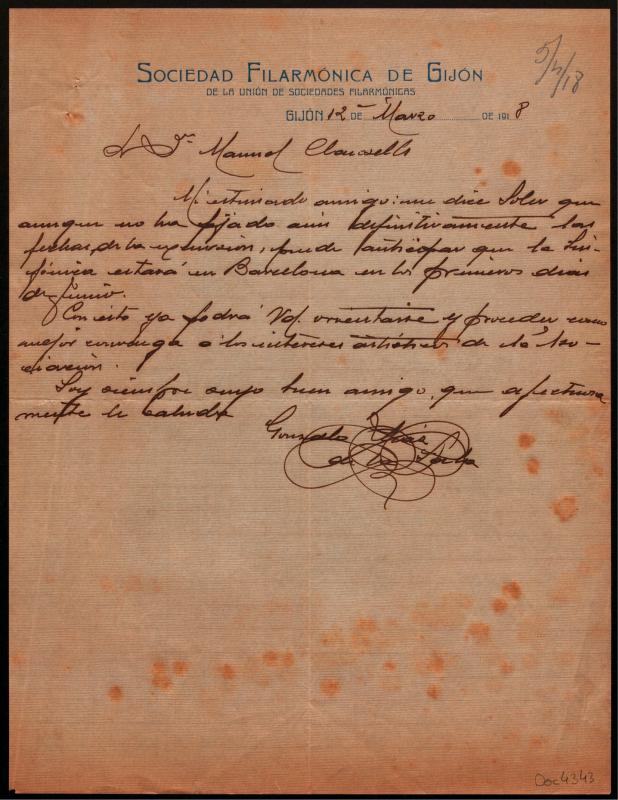 SOCIEDAD FILARMÓNICA DE GIJÓN
DE LA UNIÓN DE SOCIEDADES FILARMÓNICAS
GIJÓN 12 DE Marzo DE 1918
Sr. Dn. Manuel Clausells
Mi estimado amigo: me dice Soler que
aunque no ha fijado aún definitivamente las
fechas de la excursión, puede anticipar que la Sin-
fónica estará en Barcelona en los primeros dias
de Junio.
Con esto ya podrá Vd. orientarse y proceder como
mejor convenga a los intereses artísticos de esa Aso-
ciación.
Soy siempre suyo buen amigo, que afectuosa
mente le saluda
Gonzalo
de la
Doc 4343